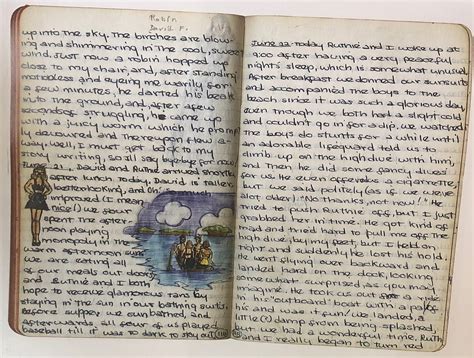 Robin
David F.
up into the sky. The birches are blow-
ing and shimmering in the cool, sweet
wind. Just now a robin hopped up
close to my chair, and, after standing
motionless and eyeing me warily for
a few minutes, he darted his beak
into the ground, and, after a few
seconds of struggling, he came up
with a juicy worm which he prompt
ly devoured and thereupon flew a-
way. Well, I must get back to my
story writing, so I'll say bye-bye for now
David and Ruthie arrived shortly
after lunch today. David is taller
better looking, and Oh! So much
improved (I mean
nice!) We
spent the after-
noon playing
monopoly in the
warm afternoon sun.
We are eating all
of our meals out doors,
and Ruthie and I both
hope to receive glamorous tans by
staying in the sun in our bathing suits.
Before supper we sunbathed, and
afterwards, all four of us played
baseball till it was to dark to stay out.
June 23 Today Ruthie and I woke up at
9:00 after having a very peaceful
night's sleep, which is somewhat unusual.
After breakfast we donned our suits
and accompanied the boys to the
beach since it was such a glorious day
even though we both had a slight cold
and couldn't go in for a dip, we watched
the boys do stunts for a while until
an adorable lifeguard told us to
climb up on the high dive with him,
and then he did some fancy dives
for us. He even offered us a cigarette,
but we said politely (as if we were
alot older) "No thanks, not now!" He
tried to push Ruthie off, but I just
grabbed her in time. He got kind of
mad and tried hard to pull me off the
high dive, by my feet, but I held on
tight and suddenly he lost his hold.
He went flying over backward and
landed hard on the dock, looking
some what surprised, as you may
imagine. He took us out for a ride
in his "outboard" boat with a pal of
his and we had fun, inspite of being a
little (?) damp from being splashed,
but we had a wonderful time. Ruth
and I really began to turn red